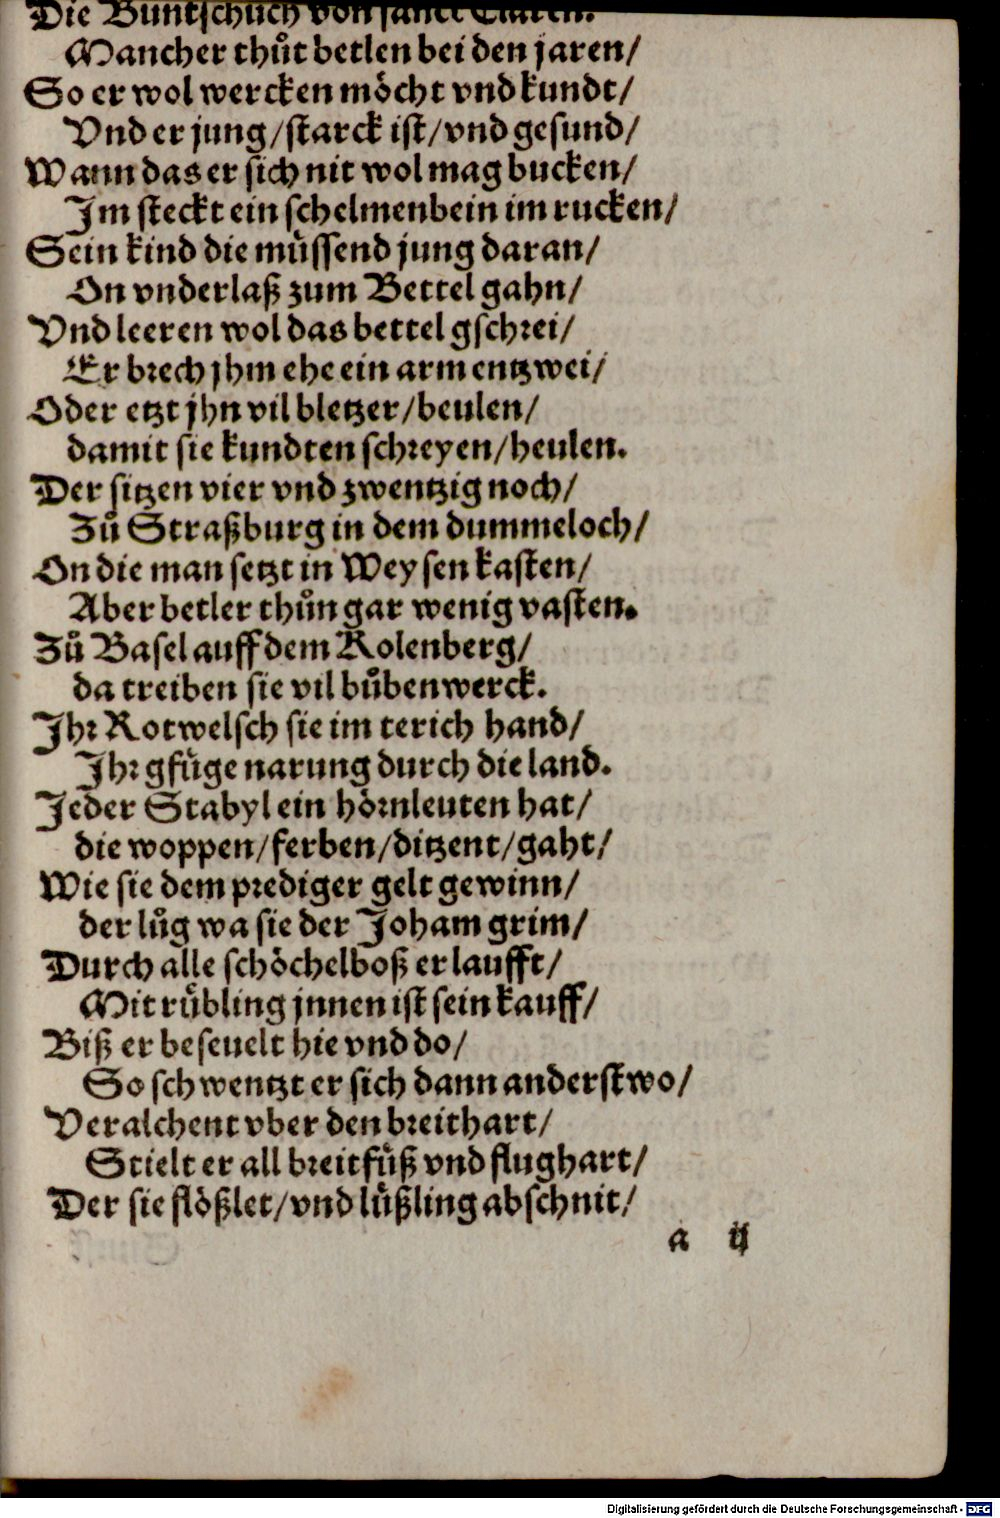 Die Buntschuch von sanct Claren.
Mancher thůt betlen bei den jaren/
So er wol wercken möcht vnd kundt/
Vnd er jung/starck ist/vnd gesund/
Wann das er sich nit wol mag bucken/
Im steckt ein schelmenbein im rucken/
Sein kind die müssend jung daran/
On vnderlaß zum Bettel gahn/
Vnd leeren wol das bettel gschrei/
Er brech jhm ehe ein arm entzwei/
Oder etzt jhn vil bletzer/beulen/
damit sie kundten schreyen/heulen.
Der sitzen vier vnd zwentzig noch/
Zů Straßburg in dem dummeloch/
On die man setzt in Weysen kasten/
Aber betler thůn gar wenig vasten.
Zů Basel auff dem Kolenberg/
da treiben sie vil bůbenwerck.
Ihr Rotwelsch sie im terich hand/
Ihr gfüge narung durch die land.
Jeder Stabyl ein hörnleuten hat/
die woppen/ferben/ditzent/gaht/
Wie sie dem prediger gelt gewinn/
der lůg wa sie der Joham grim/
Durch alle schöchelboß er laufft/
Mit rübling jnnen ist sein kauff/
Biß er beseuelt hie vnd do/
So schwentzt er sich dann anderstwo/
Veralchent vber den breithart/
Stielt er all breitfüß vnd flughart/
Der sie flößlet/vnd lüßling abschnit/
a ij
Digitalisierung gefördert durch die Deutsche Forschungsgemeinschaft - DFG